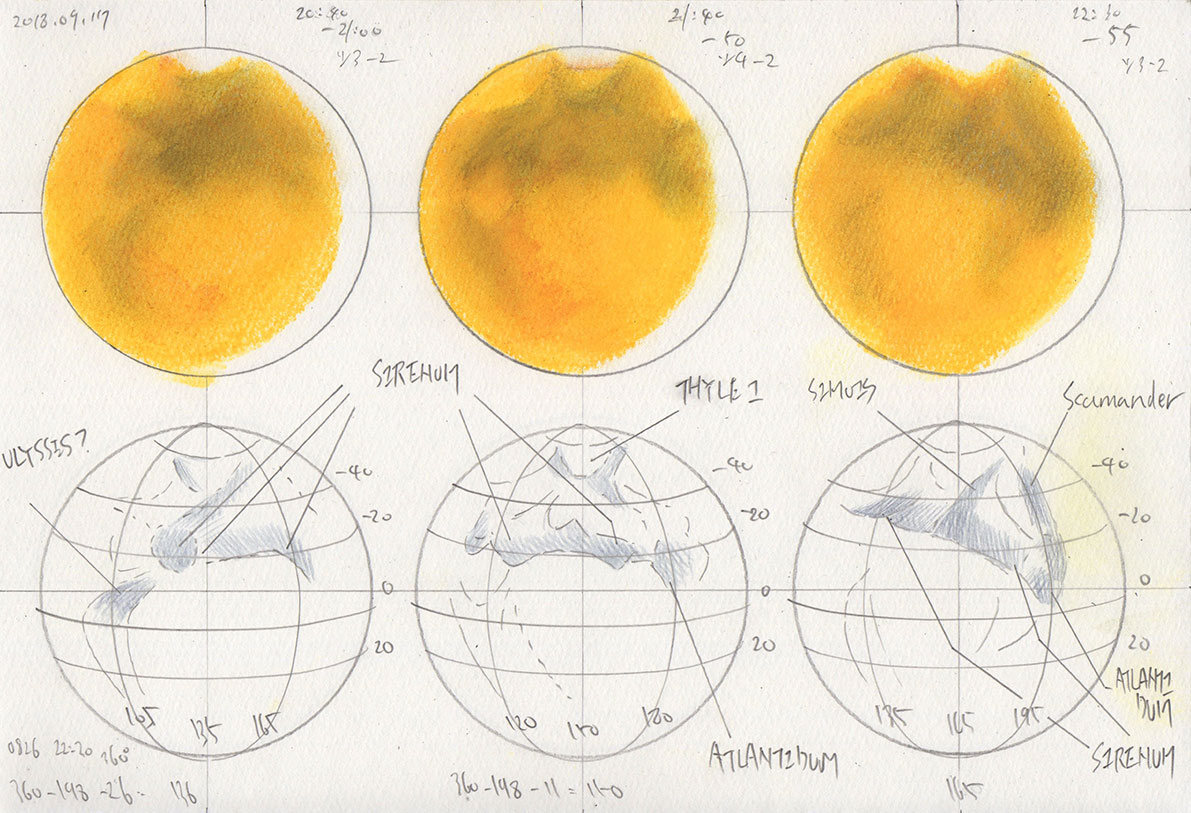 2018.09.17
20:40
-21:00
1/3-2
21:40
-50
1/4-2
22:30
-55
1/3-2
SIRENUM
THYLE I
SIMOIS
Scamander
ULYSSIS?
-40
-20
0
20
-40
-20
0
20
-40
-20
0
20
105
135
165
120
150
180
135
165
195
ATLANTI
DUM
ATLANTIDUM
SIRENUM
0826 22:20 360°
360-198-26= 136
360-198-11=150
165